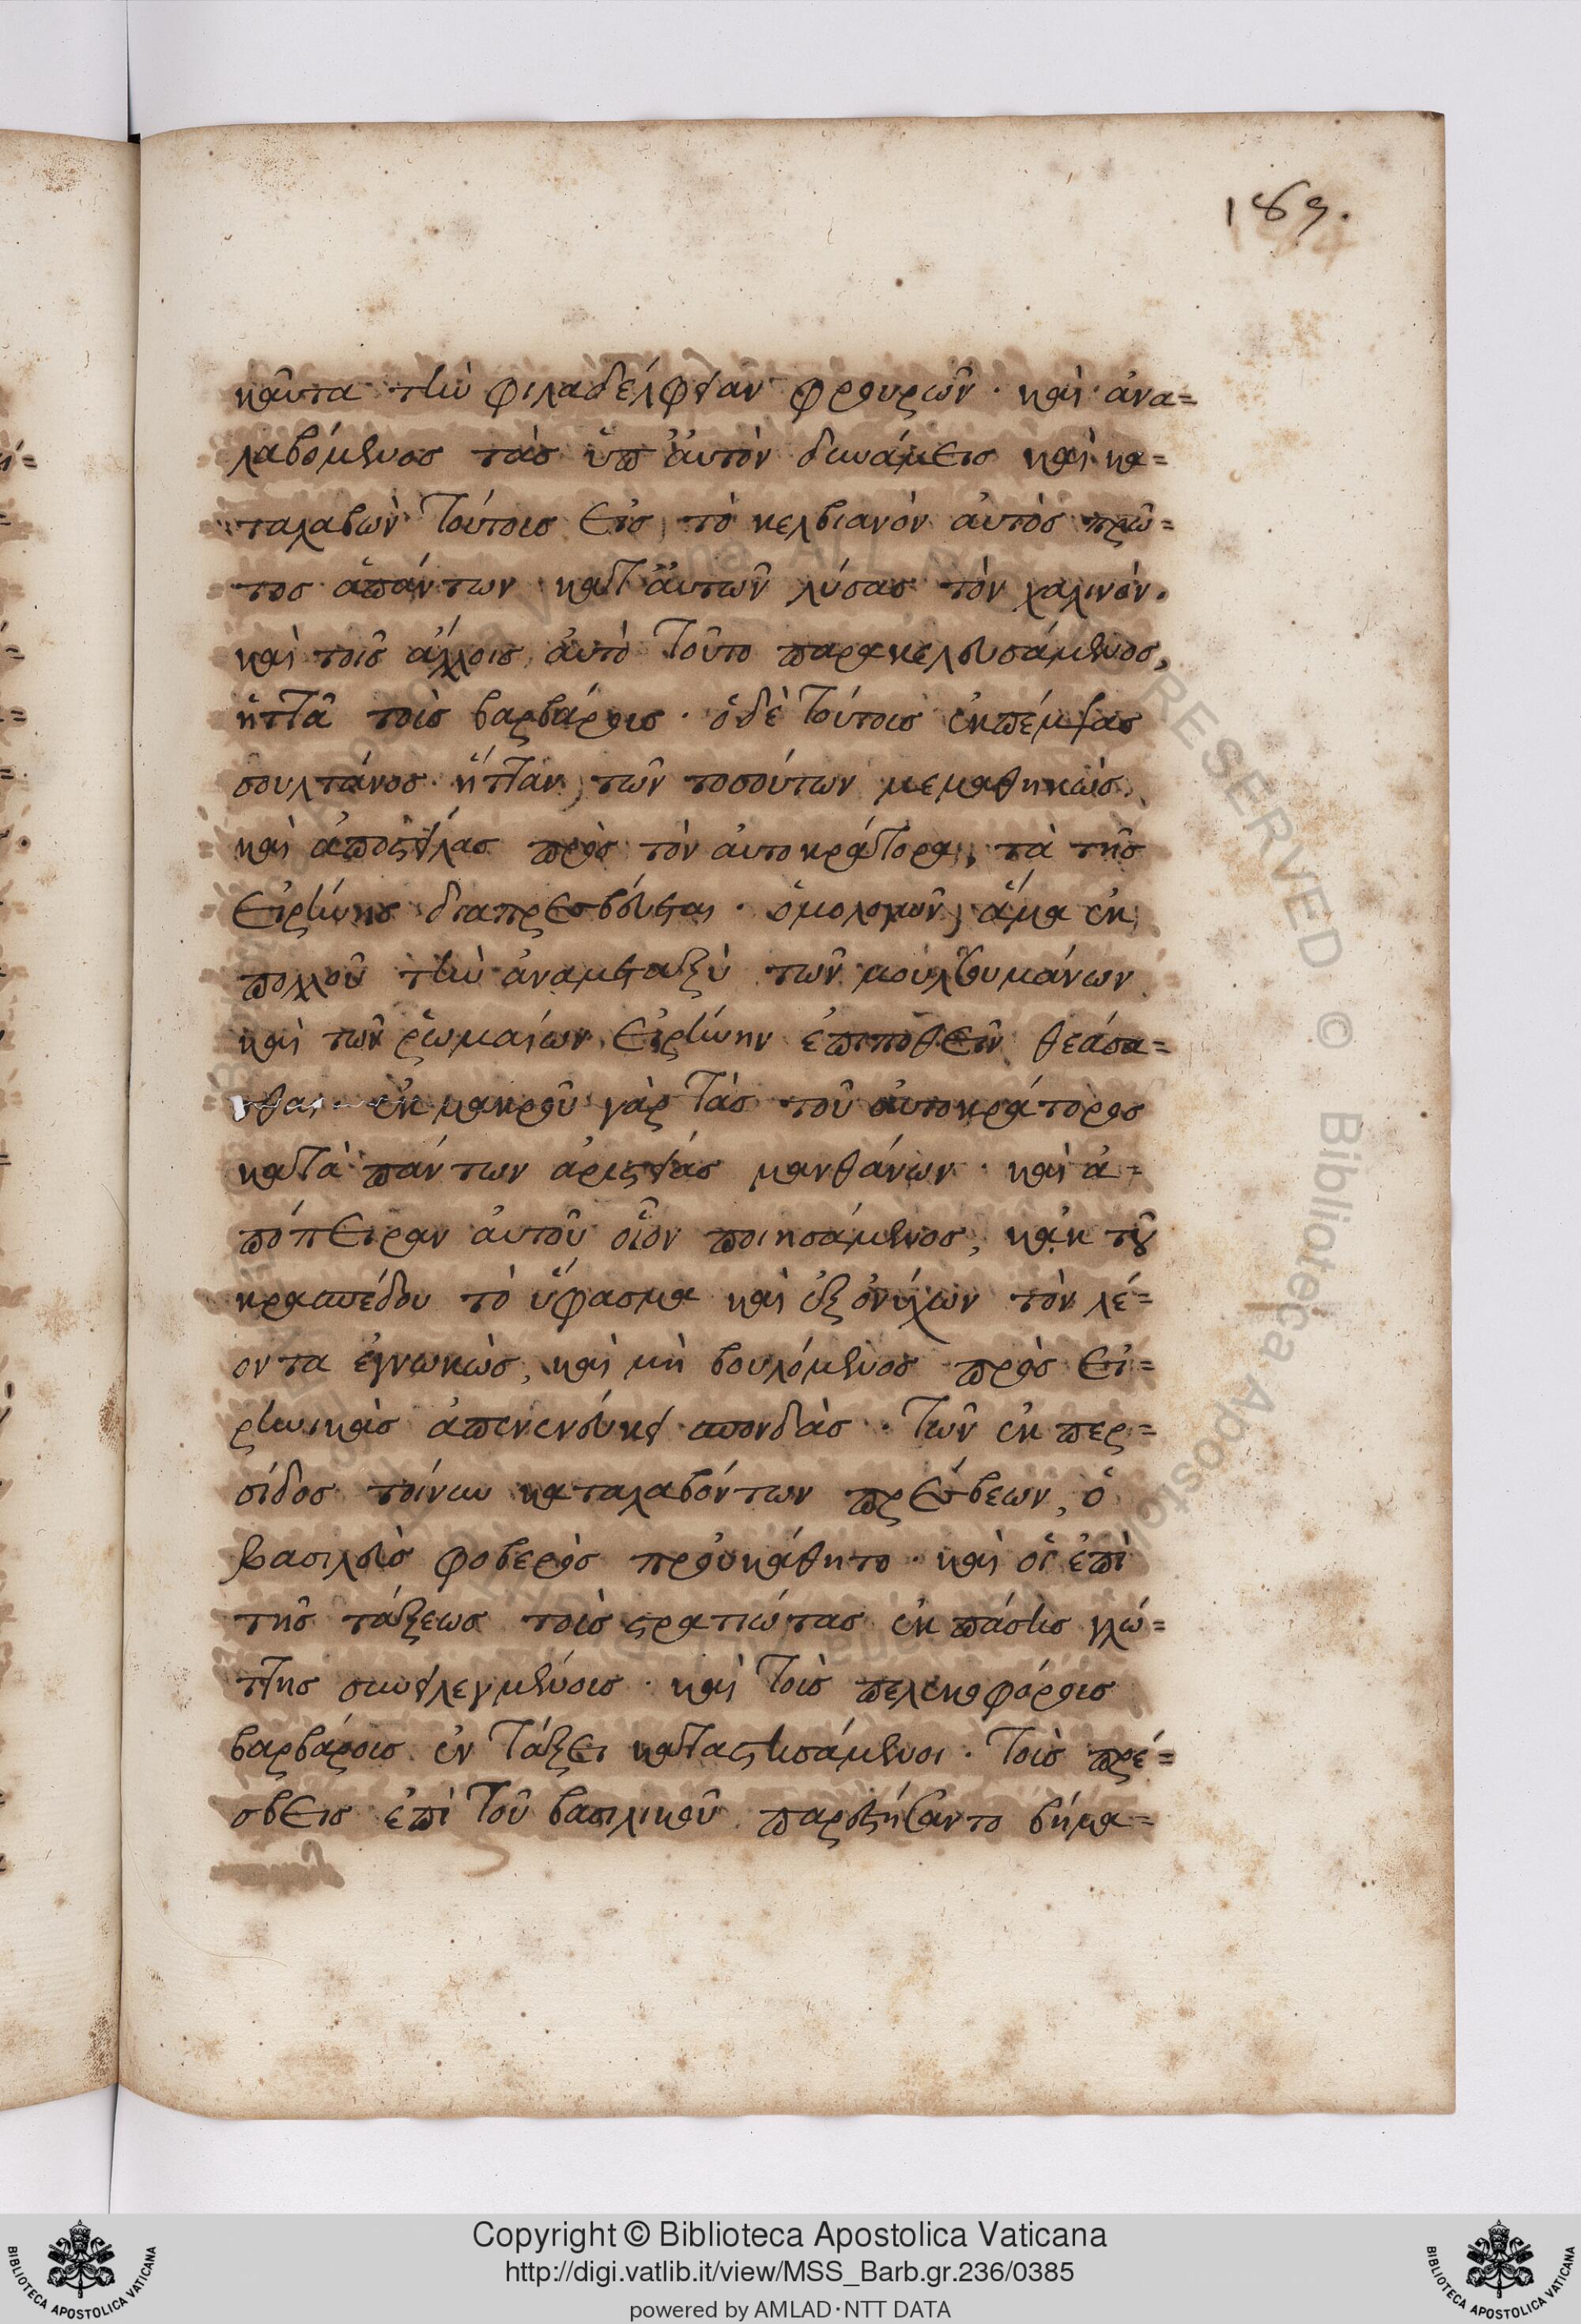 189.
καῦτα τὴν φιλαδέλφειαν φρουρῶν · καὶ ἀνα=
λαβόμενος τὰς ὑπ ἀυτὸν δυνάμεις καὶ κα=
ταλαβὼν τούτοις εἰς τὸ κελβιανὸν ἀυτὸς πρῶ=
τος ἁπάντων κατ ἀυτῶν λύσας τὸν χαλινόν.
καὶ τοῖς ἄλλοις ἀυτὸ τοῦτο παρακελευσάμενος,
ἡττᾶ τοὺς βαρβάρους · ὁ δὲ τούτοις ἐκπέμψας
σουλτάνος ἧτταν τῶν τοσούτων μεμαθηκὼς
καὶ ἀποστείλας πρὸς τὸν ἀυτοκράτορα, τὰ τῆς
εἰρήνης διαπρεσβεύεται · ὁμολογῶν ἅμα ἐκ
πολλοῦ τὴν ἀναμεταξὺ τῶν μουλσουμάνων
καὶ τῶν ῥωμαίων εἰρήνην ἐπιποθεῖν θεάσα=
σθαι ἐκ μακροῦ γὰρ τὰς τοῦ ἀυτοκράτορος
κατὰ πάντων ἀριστείας μανθάνων · καὶ ἀ=
πόπειραν ἀυτοῦ οἷον ποιησάμενος, κἀκ τοῦ
κρασπέδου τὸ ὕφασμα καὶ ἐξ ὀνύχων τὸν λέ=
οντα ἐγνωκὼς, καὶ μὴ βουλόμενος πρὸς εἰ=
ρηνικὰς ἀπενενεύκει σπονδὰς · τῶν ἐκ περ=
σίδος τοίνυν καταλαβόντων πρέσβεων, ὁ
βασιλεὺς φοβερὸς προὐκάθητο · καὶ οἱ ἐπὶ
τῆς τάξεως τοὺς στρατιώτας ἐκ πάσης γλώ=
ττης συνειλεγμένους · καὶ τοὺς πελεκοφόρους
βαρβάρους ἐν τάξει καταστησάμενοι · τοὺς πρέ=
σβεις ἐπὶ τοῦ βασιλικοῦ παρεστήσαντο βήμα=
Copyright © Biblioteca Apostolica Vaticana
http://digi.vatlib.it/view/MSS_Barb.gr.236/0385
powered by AMLAD·NTT DATA